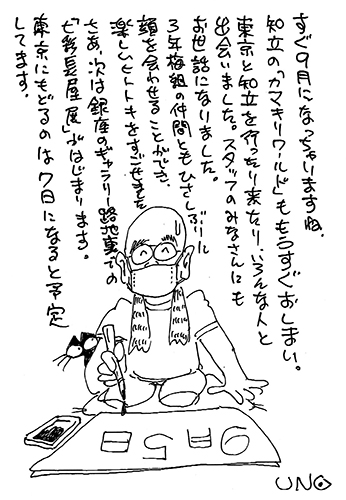 すぐ9月になっちゃいますね、
知立の「カマキリワールド」ももうすぐおしまい。
東京と知立を行ったり来たり、いろんな人と
出会いました。スタッフのみなさんにも
お世話になりました。
3年梅組の仲間ともひさしぶりに
顔を合わせることができ、
楽しいヒトトキをすごせました
さあ、次は銀座のギャラリー路地裏での
「七彩長屋展」がはじまります。
東京にもどるのは7日になると予定
してます。
9月5日
UNO